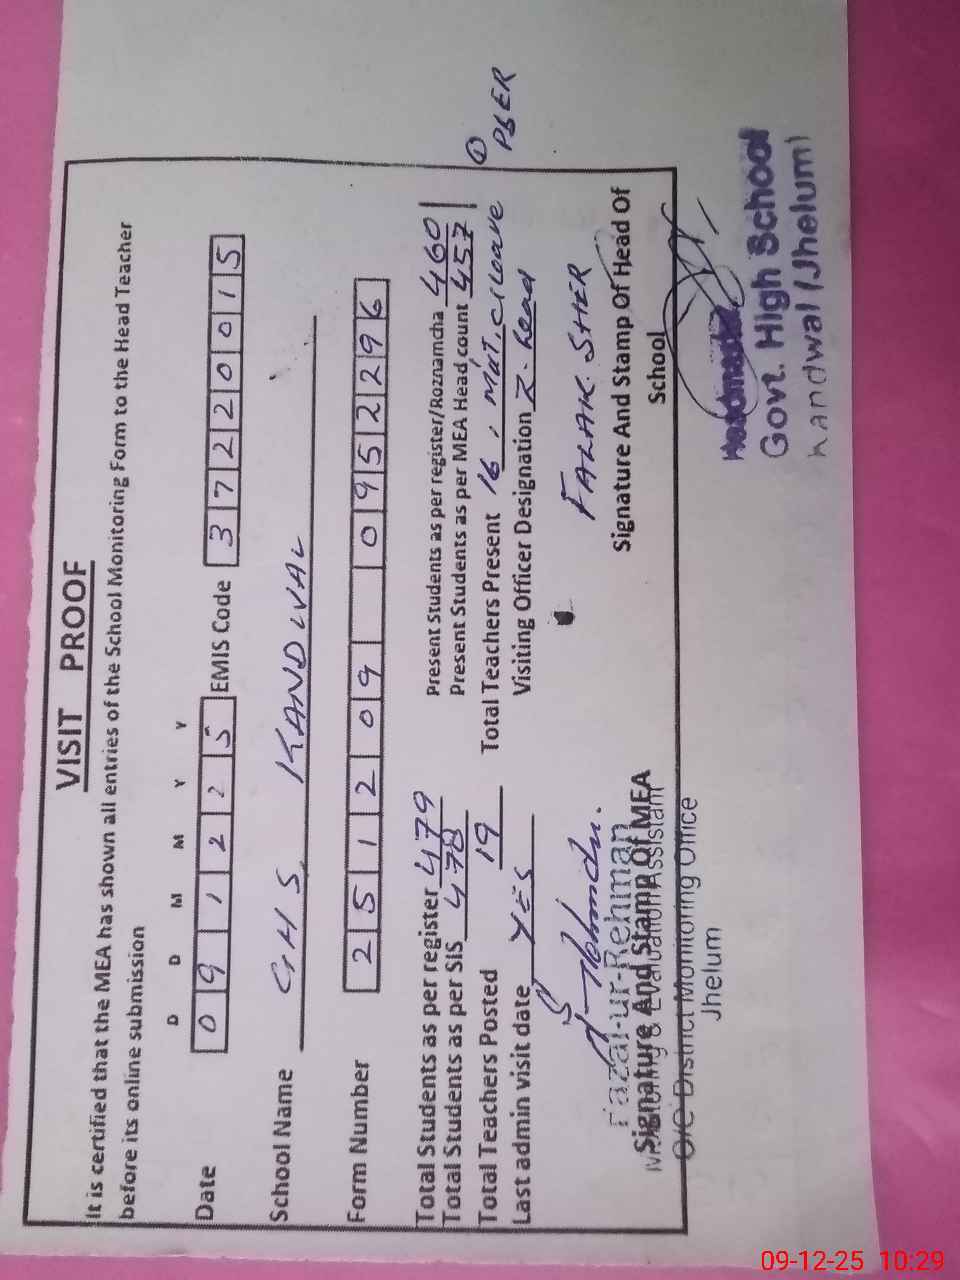 VISIT PROOF
It is certified that the MEA has shown all entries of the School Monitoring Form to the Head Teacher
before its online submission
D D M M Y Y
Date 0 9 1 2 2 5 EMIS Code 3 7 2 2 0 0 1 5
School Name GHS KANDWAL
Form Number 2 5 1 2 0 9 0 9 5 2 2 9 6
Total Students as per register 479 Present Students as per register/Roznamcha 460
Total Students as per SIS 478 Present Students as per MEA Head count 457
Total Teachers Posted 19 Total Teachers Present 16, Mat, C/Leave ① PSER
Last admin visit date YES Visiting Officer Designation Z. head
FALAK SHER
Fazal-ur-Rehman
Signature And Stamp of MEA Signature And Stamp Of Head Of
School
Monitoring & Evaluation Assistant
O/O District Monitoring Office
Jhelum
Headmaster
Govt. High School
Kandwal (Jhelum)
09-12-25 10:29